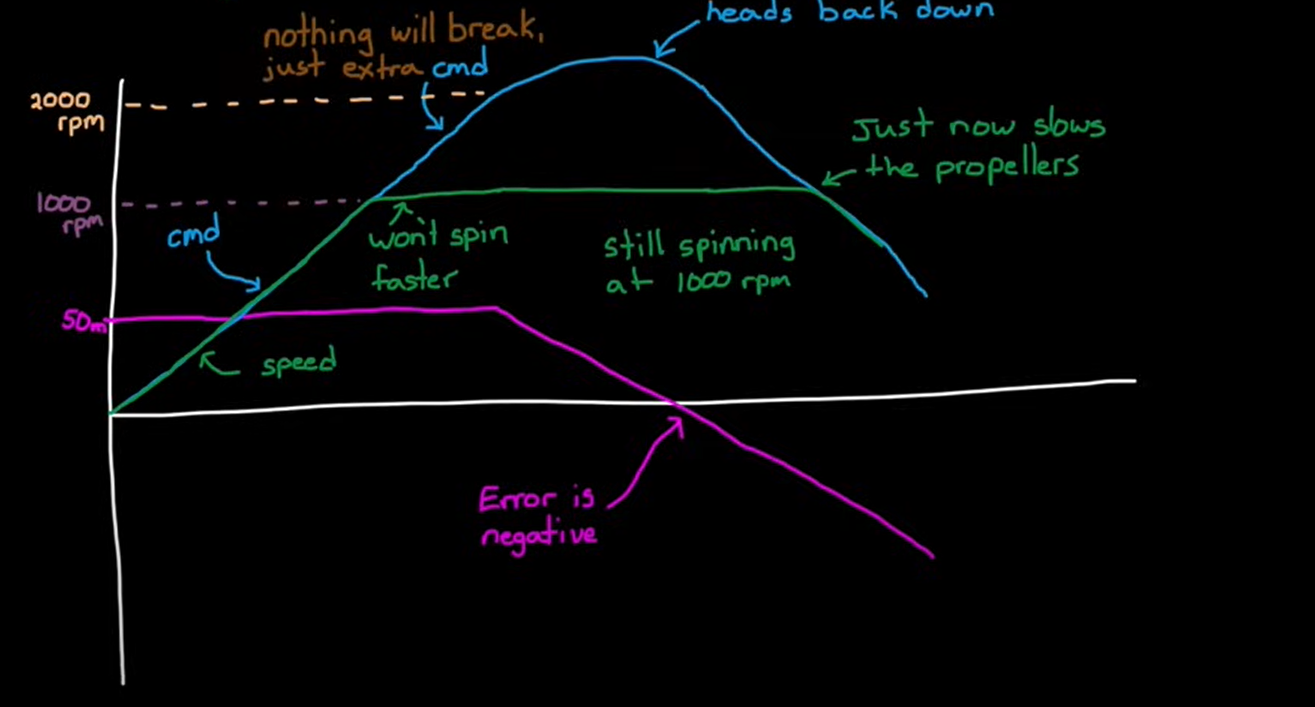 heads back down
nothing will break,
just extra cmd
2000
rpm
Just now slows
the propellers
1000
rpm
cmd
won't spin
faster
still spinning
at 1000 rpm
50m
speed
Error is
negative